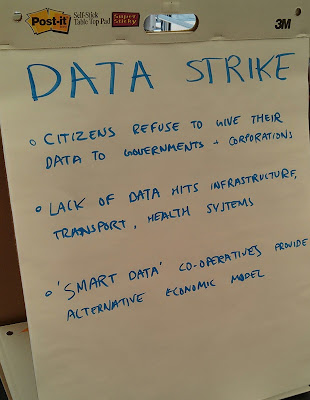 Post-it
Self-Stick
Table Top Pad
Super
Sticky
3M
DATA STRIKE
CITIZENS REFUSE TO GIVE THEIR
DATA TO GOVERNMENTS + CORPORATIONS
LACK OF DATA HITS INFRASTRUCTURE,
TRANSPORT, HEALTH SYSTEMS
'SMART DATA' CO-OPERATIVES PROVIDE
ALTERNATIVE ECONOMIC MODEL